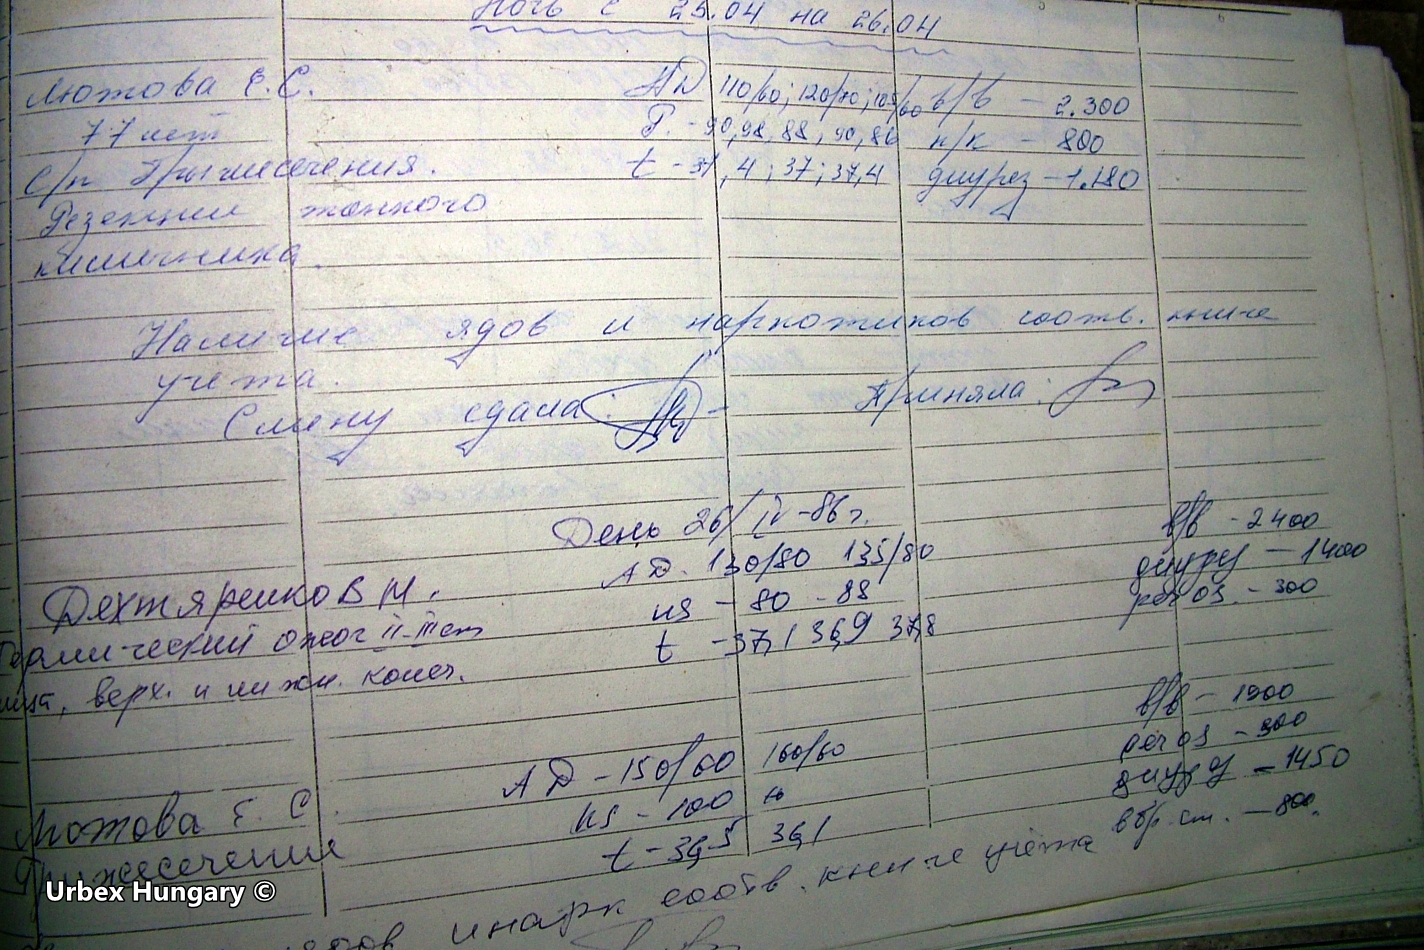 Ночь с 25.04 на 26.04
Мотова Е.С. АД 110/60; 120/70; 105/60 в/в - 2.300
77 лет Р. - 90, 98, 88, 90, 86 п/к - 800
с/п Грыжесечения. t - 37,4; 37; 37,4 диурез - 1.180
Резекции тонкого
кишечника.
Наличие ядов и наркотиков соотв. книге
учета.
Смену сдала: Приняла:
День 26/IV-86г. в/в - 2400
Дехтяренко В М. АД. 130/80 135/80 диурез - 1400
Термический ожог II-III ст ps - 80 - 88 per os. - 300
лица, верх. и нижн. конеч. t - 37,1 36,9 37,8
в/в - 1900
АД - 150/60 160/60 per os - 300
Мотова Е. С. ps - 100 диурез - 1450
Грыжесечение t - 36,5 36,1 - 800.
ядов и нарк соотв. книге учёта
Urbex Hungary ©